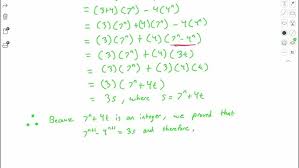 = (3+4)(7ⁿ) - 4(4ⁿ)
= (3)(7ⁿ) + (4)(7ⁿ) - 4(4ⁿ)
= (3)(7ⁿ) + (4)(7ⁿ - 4ⁿ)
= (3)(7ⁿ) + (4)(3t)
= (3)(7ⁿ) + (3)(4)(t)
= (3)(7ⁿ + 4t)
= 3s, where s = 7ⁿ + 4t
∴ Because 7ⁿ + 4t is an integer, we proved that
7ⁿ⁺¹ - 4ⁿ⁺¹ = 3s and therefore,